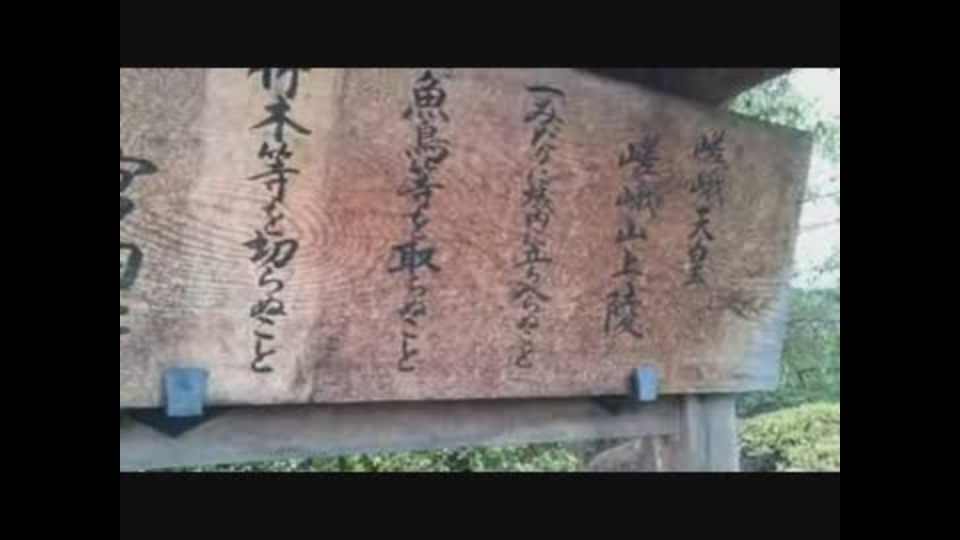 嵯峨天皇
嵯峨山上陵
一みだりに域内に立ち入らぬこと
魚鳥等を取らぬこと
竹木等を切らぬこと
宮内庁